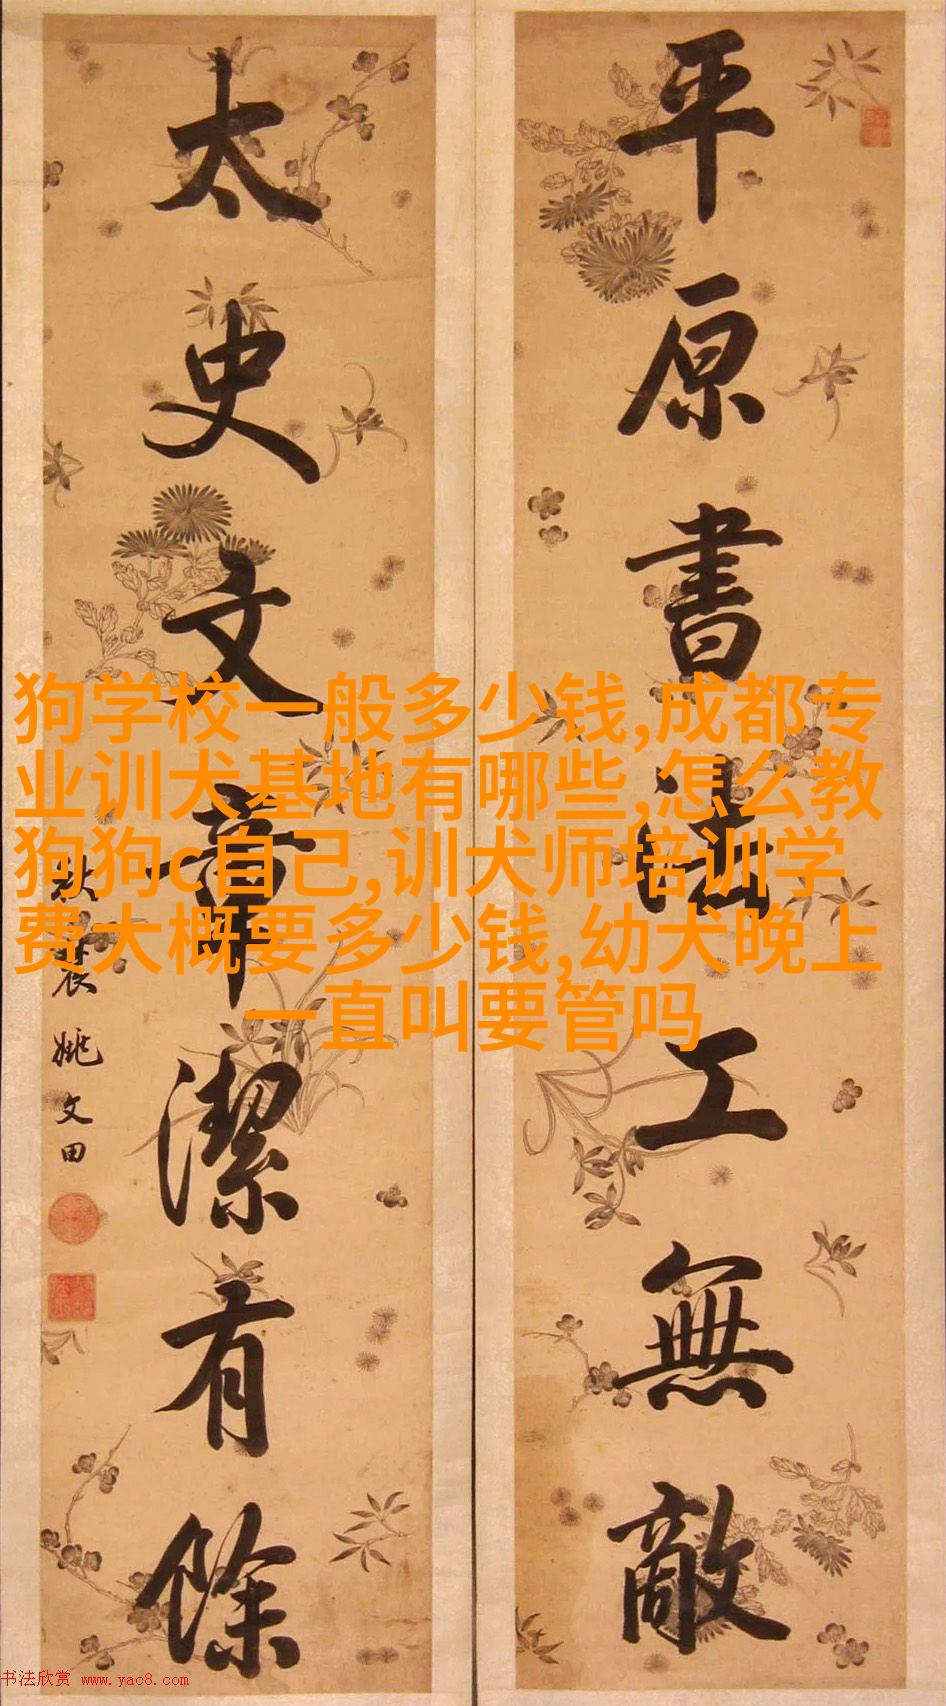 平原書法工無敵
太史文章潔有餘
秋農姚文田
狗学校一般多少钱,成都专
业训犬基地有哪些,怎么教
狗狗c自己,训犬师培训学
费大概要多少钱,幼犬晚上
一直叫要管吗
书法欣赏 www.yac8.com